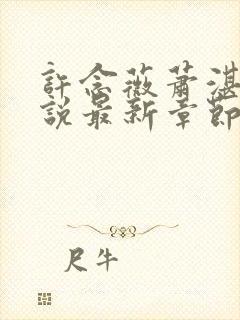 許念薇蕭湛
說最新章節
尺牛